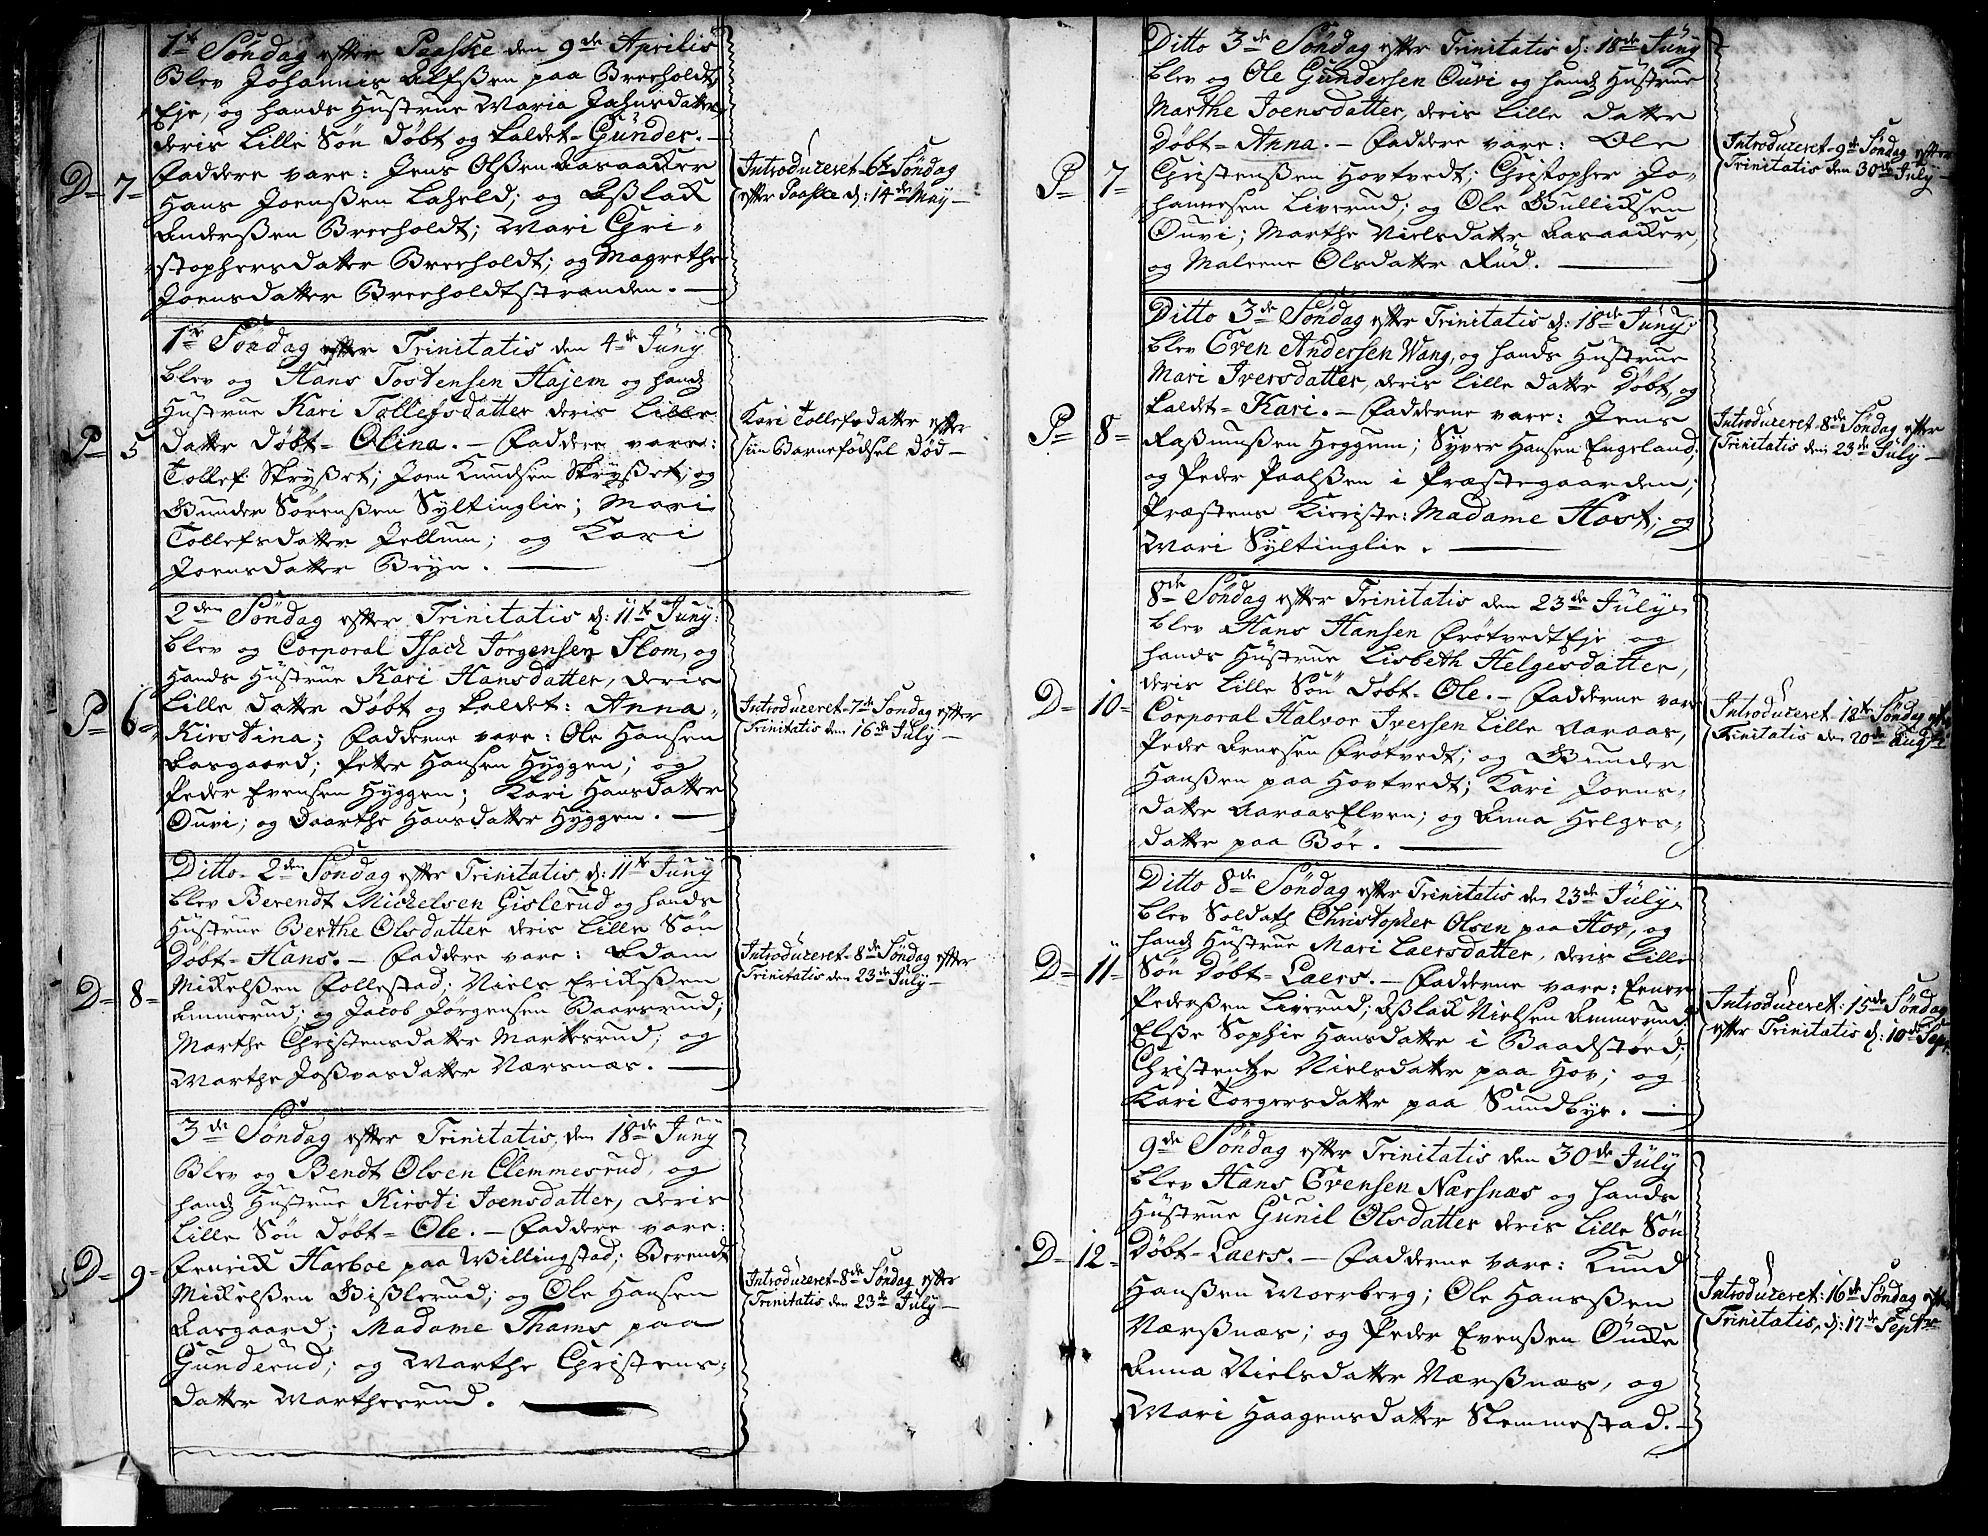 1te Søndag efter Paaske den 9de Aprilis
Blev Johannis Alfsßen paa Breeholdts
Eje, og hands Hustrue Maria Jahnsdatter
deris Lille Søn døbt og kaldet= Gunder. —
Faddere vare: Jens Olsßen Aasaaker
D= 7=
Hans Joensßen Laheld; og Aßlak
Andersßen Breeholdt; Mari Chri=
stophersdatter Breeholdt; og Magrethe
Joensdatter Breeholdtstranden. —
Introduceret= 6te Søndag
efter Paaske d: 14de May —
1te Søndag efter Trinitatis den 4de Juny
blev og Hans Tostensen Hajem og hands
Hustrue Kari Tollefsdatter deris Lille
datter døbt= Olina. — Faddere vare:
P= 5
Tollef Skryßet; Joen Knudsen Skryßet; og
Gunder Sørensßen Syltinglie; Mari
Tollefsdatter Jellum; og Kari
Joensdatter Bryn. —
Kari Tollefsdatter efter
siin Barnefødsel død —
2den Søndag efter Trinitatis d: 11te Juny:
blev og Corporal Isach Jørgensen Skom, og
Hands Hustrue Kari Hansdatter, deris
Lille datter døbt og kaldet: Anna
P= 6=
Kirstina; Fadderne vare: Ole Hansen
Aasgaard; Petter Hansen Hyggen; og
Peder Evensen Hyggen; Kari Hansdatter
Ouvi; og Daarthe Hansdatter Hyggen. —
Introduceret= 7de Søndag efter
Trinitatis den 16de July —
Ditto= 2den Søndag efter Trinitatis, d: 11te Juny
blev Berendt Michelsen Gislerud og hands
Hustrue Berthe Olsdatter deris Lille Søn
Døbt= Hans. — Faddere vare: Adam
D= 8=
Mikelsßen Follestad; Niels Eriksßen
Ammerud; og Jacob Jørgensen Baarsrud;
Marthe Christensdatter Martesrud; og
Marthe Joßvasdatter Nærsnæs. —
Introduceret= 8de Søndag efter
Trinitatis den 23de July —
3de Søndag efter Trinitatis, den 18de Juny
Blev og Bendt Olsen Clemmesrud, og
hands Hustrue Kirsti Joensdatter, deris
Lille Søn døbt= Ole. — Faddere vare:
D= 9=
Fenrik Harboe paa Willingstad; Berendt
Mikelsßen Gißlerud; og Ole Hansen
Aasgaard; Madame Thams paa
Gunderud; og Marthe Christens=
datter Marthesrud.
Introduceret= 8de Søndag efter
Trinitatis den 23de July —
Ditto 3de Søndag efter Trinitatis d: 18de Juny
blev og Ole Gundersen Ouvi og hands Hustrue
Marthe Joensdatter, deris Lille datter
Døbt= Anna. — Faddere vare: Ole
P= 7=
Christensßen Hovtvedt; Christopher Jo=
hannesen Liverud; og Ole Gulliksen
Ouvi; Marthe Nielsdatter Aasaaker,
og Maleene Olsdatter Rud. —
Introduceret= 9de Søndag efter
Trinitatis den 30de July —
Ditto 3de Søndag efter Trinitatis d: 18de Juny:
blev Even Andersen Wang, og hands Hustrue
Mari Iversdatter, deris Lille datter Døbt, og
kaldet= Kari. — Fadderne vare: Jens
P= 8=
Raßmusßen Heggum; Syver Hansen Engeland;
og Peder Paalsßen i Præstegaarden;
Præstens Kieriste: Madame Høst; og
Mari Syltinglie. —
Introduceret= 8de Søndag efter
Trinitatis den 23de July —
8de Søndag efter Trinitatis den 23de July.
blev Hans Hansen Frøtvedt Eje og
hands Hustrue Lisbeth Helgesdatter,
deris Lille Søn døbt= Ole. — Fadderne vare
D= 10=
Corporal Halvor Iversen Lille Aaraas,
Peder Arnesen Frøtvedt; og Gunder
Hansßen paa Hovtvedt; Kari Joens=
datter Aaraas Elven; og Anna Helges=
datter paa Bøe. —
Introduceret= 12te Søndag efter
Trinitatis den 20de Augsti
Ditto 8de Søndag efter Trinitatis den 23de July.
blev Soldath Christopher Olsen paa Hov, og
hands Hustrue Mari Laersdatter, deris Lille
D= 11=
Søn døbt= Laers. — Fadderne vare: Eener
Pedersßen Liverud; Aßlak Nielsen Ammerud
Elsße Sophie Hansdatter i Baadstøed;
Christentze Nielsdatter paa Hov; og
Kari Torgersdatter paa Sundbye. —
Introduceret: 15de Søndag
efter Trinitatis d: 10de Sept.
9de Søndag efter Trinitatis den 30de July
blev Hans Evensen Nærsnæs og hands
Hustrue Gunil Olsdatter deris Lille Søn
D= 12=
Døbt= Laers. — Fadderne vare: Knud
Hansßen Morberg; Ole Hansßen
Nærßnæs; og Peder Evensßen
Anna Nielsdatter Nærßnæs, og
Mari Haagensdatter Slemmestad. —
Introduceret: 16de Søndag efter
Trinitatis, d: 17de Septr